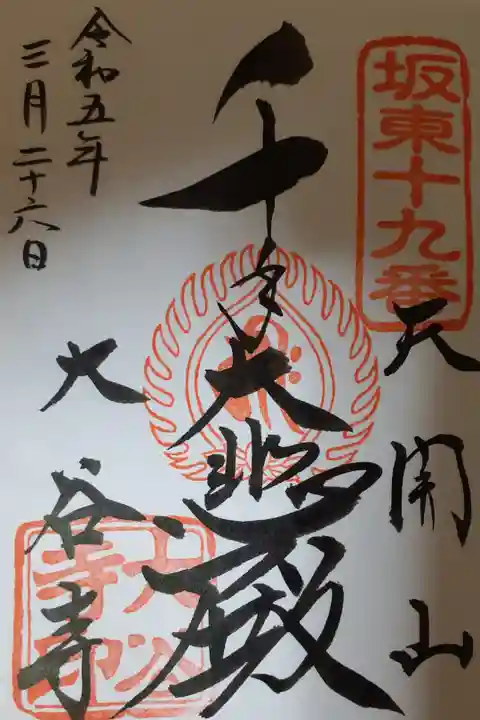 坂東十九番
天開山
千手大悲殿
大谷寺
令和五年
三月二十六日